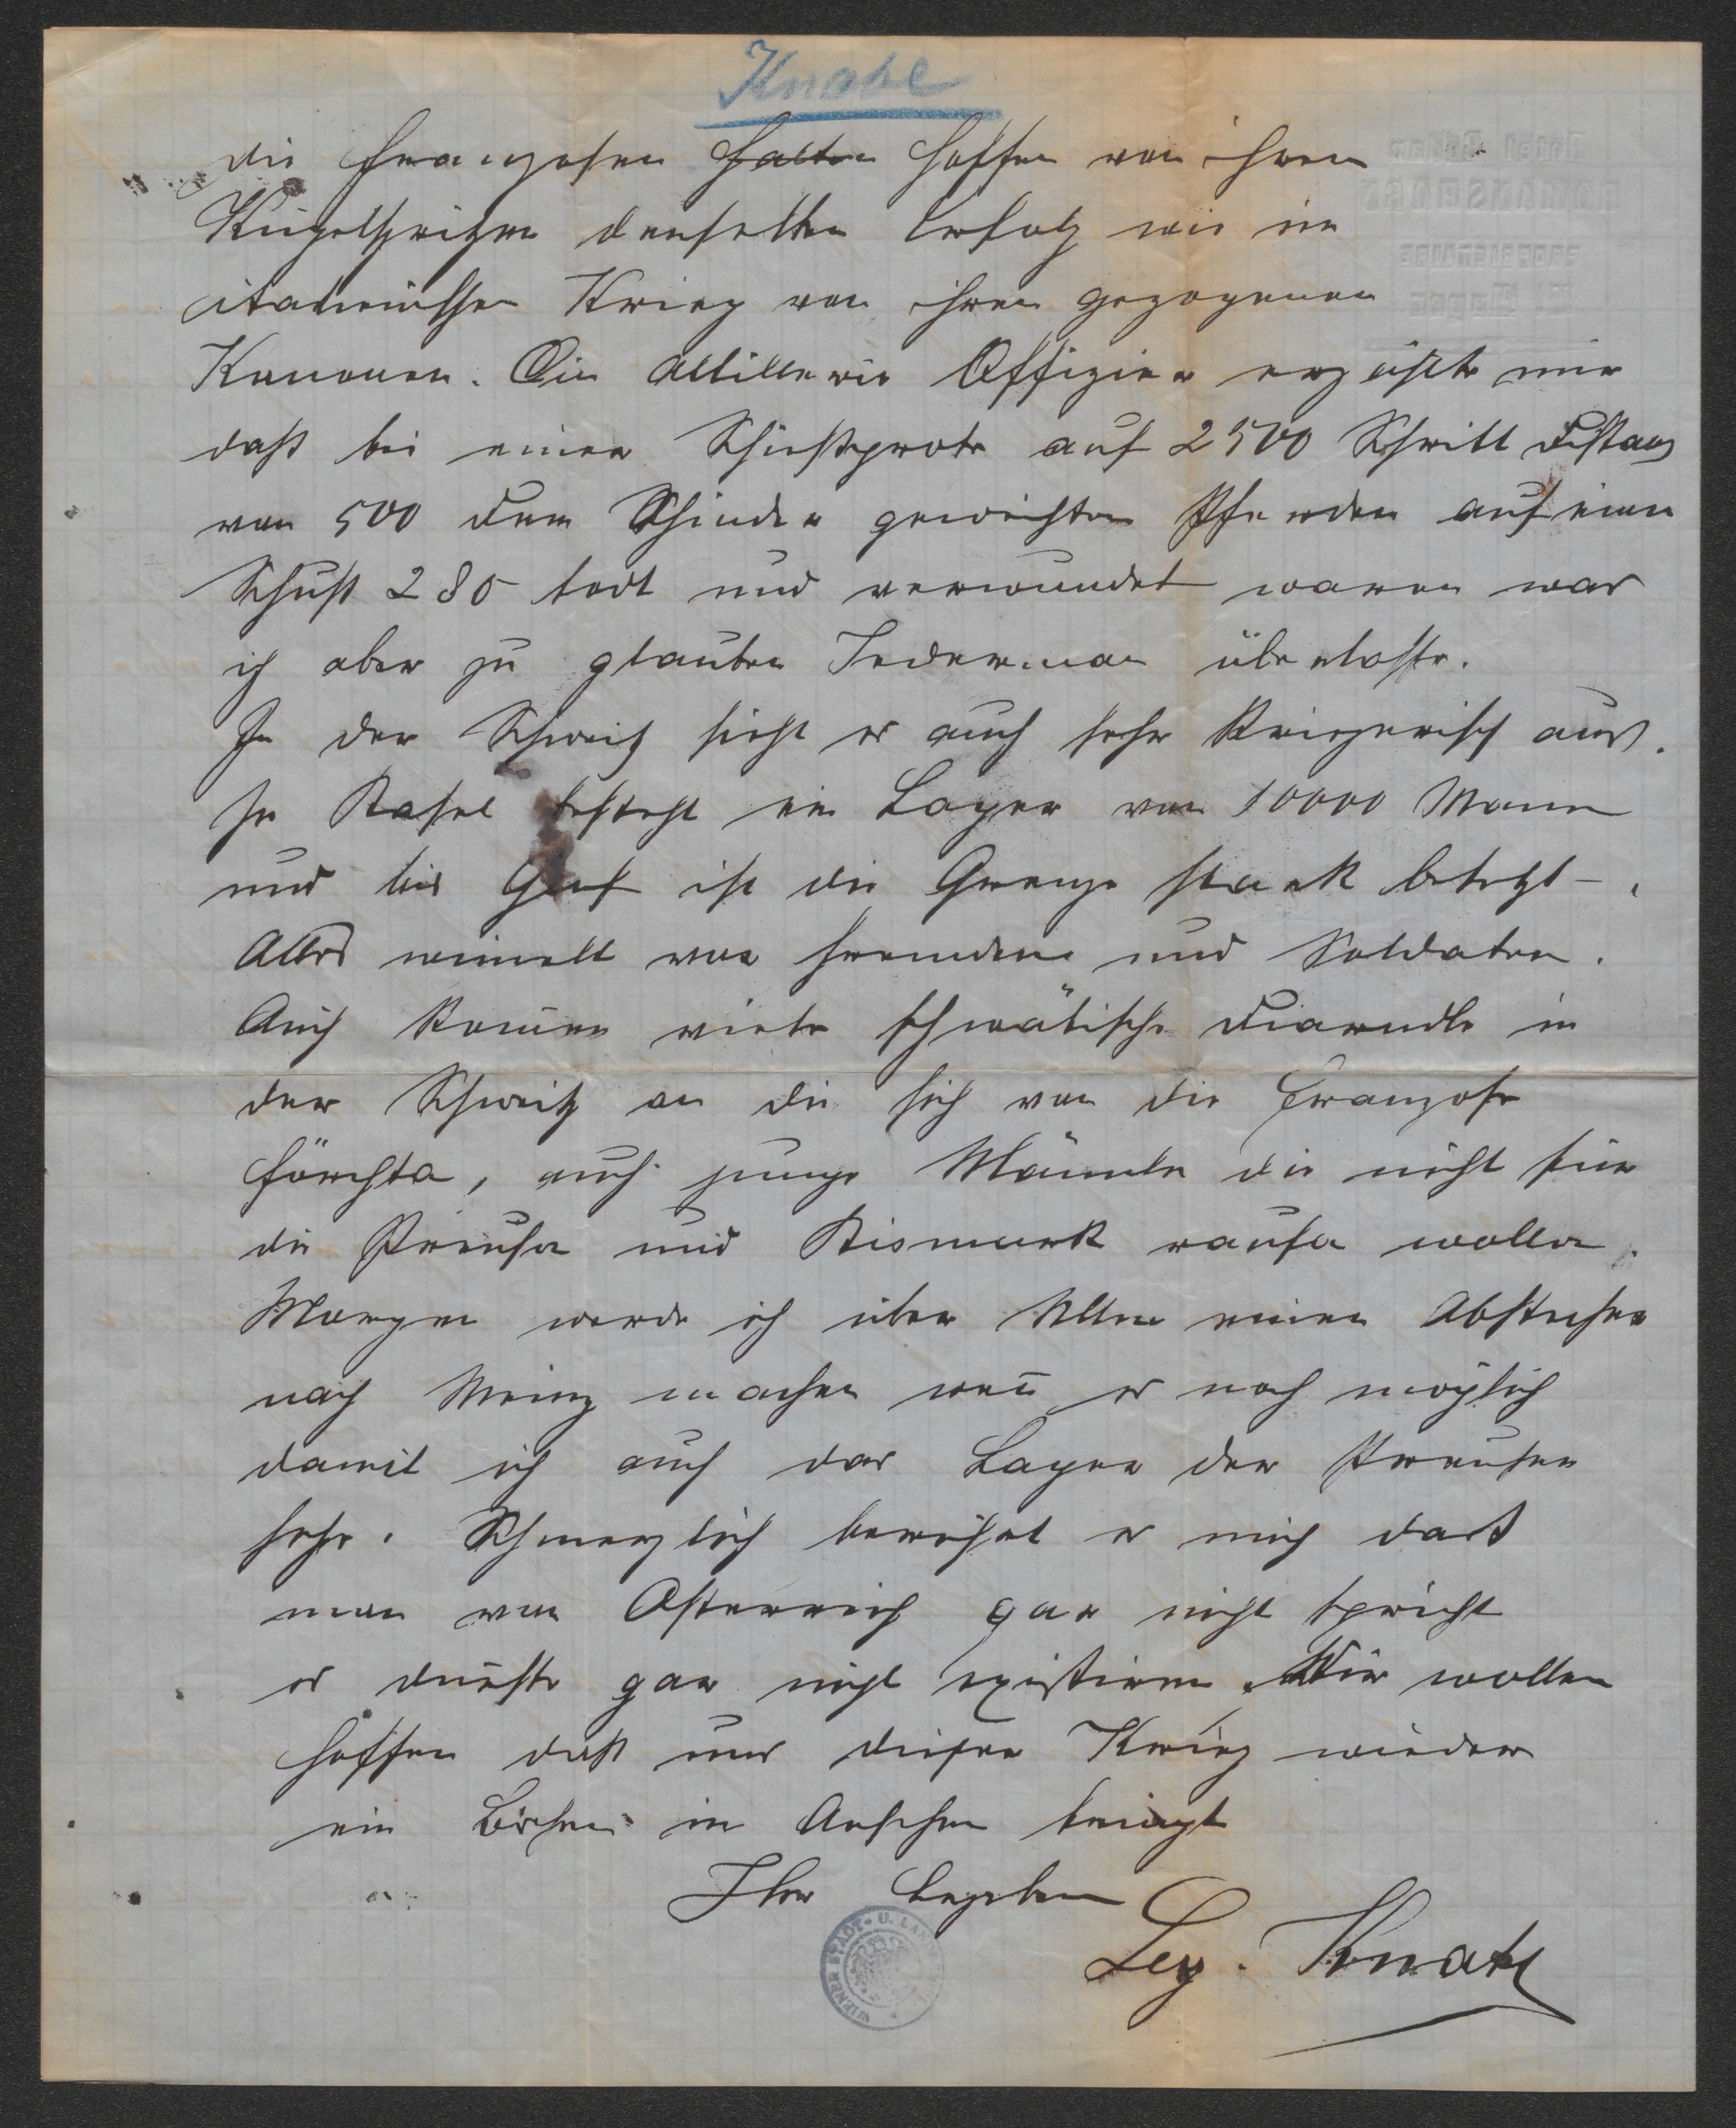 Knabe
die Franzosen halten hoffen von ihren
Kugelspritzen denselben Erfolg wie im
italienischen Krieg von ihren gezogenen
Kanonen. Ein Attillerie Offizier erzählte mir
daß bei einer Schießprobe auf 2500 Schritt Distanz
von 500 dem Schinder geweihten Pferden auf einen
Schuß 280 todt und verwundet waren was
ich aber zu glauben Jederman überlasse.
In der Schweitz sieht es auch sehr Kriegerisch aus.
In Basel besteht ein Lager von 10000 Mann
und bis Genf ist die Grenze stark besetzt.
Alles wimelt von Fremden und Soldaten.
Auch komen viele schwäbische Diarndle in
der Schweitz an die sich von die Franzose
förchta, auch junge Männle die nicht für
die Preußa und Bismark raufa wolla.
Morgen werde ich über Ulm einen Abstecher
nach Mainz machen wen̄ es noch möglich
damit ich auch das Lager der Preußen
sehe. Schmerzlich berührt es mich daß
man von Östereich gar nicht spricht
es dürfte gar nicht existiren. Wir wollen
hoffen daß uns dieser Krieg wieder
ein Bischen in Ansehen bringt
Ihr Ergebener
Leop. Knabe
WIENER STADT- U. LAN